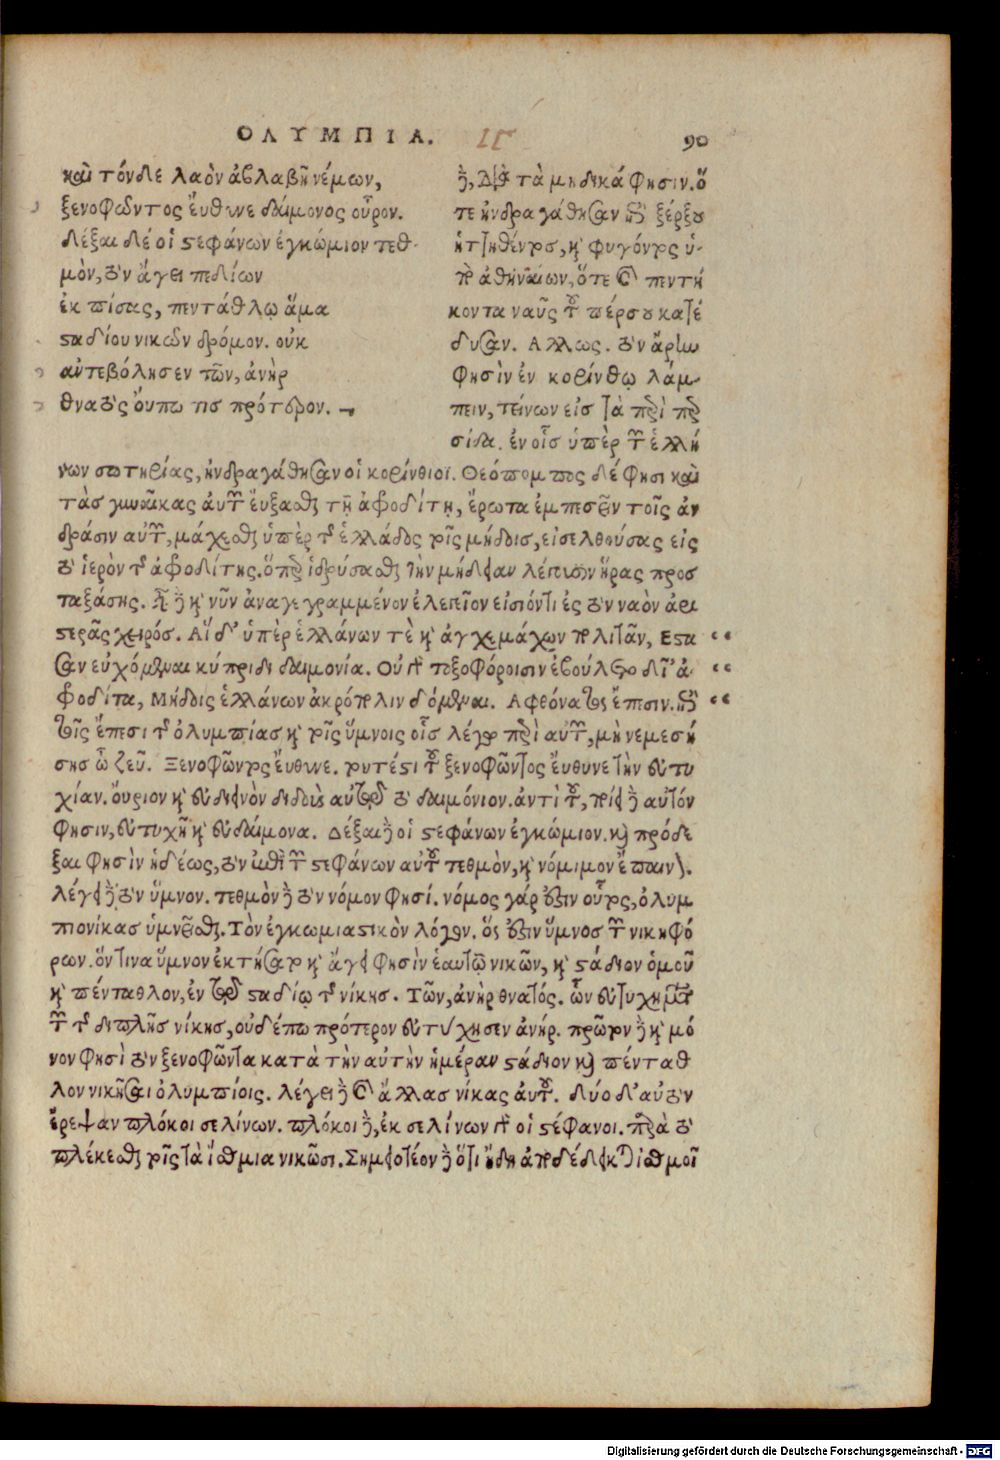 ΟΛΥΜΠΙΑ. 90
καὶ τόνδε λαὸν ἀβλαβῆ νέμων,
ξενοφῶντος εὔθυνε δαίμονος οὖρον.
δέξαι δέ οἱ στεφάνων ἐγκώμιον τεθ-
μὸν, τὸν ἄγει πεδίων
ἐκ πίσας, πεντάθλῳ ἅμα
σταδίου νικῶν δρόμον. οὐκ
ἀντεβόλησεν τῶν, ἀνὴρ
θνατὸς οὔπω τις πρότερον.
δὲ, διὰ τὰ μηδικά φησιν. ὅ
τε ἠνδραγάθησαν τοῦ ξέρξου
ἡττηθέντος, καὶ φυγόντος ὑ-
πὸ ἀθηναίων, ὅτε καὶ πεντή
κοντα ναῦς τοῦ πέρσου κατέ
δυσαν. Ἄλλως. τὸν ἄρην
φησὶν ἐν κορίνθῳ λάμ-
πειν, τείνων εἰς τὰ περὶ περ
σίδα. ἐν οἷς ὑπὲρ τῶν ἑλλή
νων σωτηρίας, ἠνδραγάθησαν οἱ κορίνθιοι. Θεόπομπος δέ φησι καὶ
τὰς γυναῖκας αὐτῶν εὔξασθαι τῇ ἀφροδίτῃ, ἔρωτα ἐμπεσεῖν τοῖς ἀν
δράσιν αὐτῶν, μάχεσθαι ὑπὲρ τῆς ἑλλάδος τοῖς μήδοις, εἰσελθούσας εἰς
τὸ ἱερὸν τῆς ἀφροδίτης. ὅπερ ἱδρύσασθαι τὴν μήδειαν λέγουσιν ἥρας προς
ταξάσης. εἶναι δὲ καὶ νῦν ἀναγεγραμμένον ἐλεγεῖον εἰσιόντι ἐς τὸν ναὸν ἀρι
στερᾶς χειρός. Αἵδ' ὑπὲρ ἑλλάνων τὲ καὶ ἀγχεμάχων πολιτᾶν, Εστα
σαν εὐχόμεναι κύπριδι δαιμονία. Οὐ γὰρ τοξοφόροισιν ἐβούλετο δῖ' ἀ-
φροδίτα, Μήδοις ἑλλάνων ἀκρόπολιν δόμεναι. Αφθόνητος ἔπεσιν. τοῦ
τοῖς ἔπεσι τῆς ὀλυμπίας καὶ τοῖς ὕμνοις οἷς λέγω περὶ αὐτῶν, μὴ νεμεσή
σης ὦ ζεῦ. Ξενοφῶντος εὔθυνε. τουτέστι τοῦ ξενοφῶντος εὔθυνε τὴν εὐτυ
χίαν. οὔριον καὶ εὐδεινὸν διδοὺς αὐτῷ τὸ δαιμόνιον. ἀντὶ τοῦ, ποίει δὲ αὐτόν
φησιν, εὐτυχῆ καὶ εὐδαίμονα. Δέξαι δὲ οἱ στεφάνων ἐγκώμιον. καὶ πρόσδε
ξαι φησὶν ἡδέως, τὸν ἐπὶ τῶν στεφάνων αὐτοῦ τεθμὸν, καὶ νόμιμον ἔπαινον.
λέγει δὲ τὸν ὕμνον. τεθμὸν δὲ τὸν νόμον φησί. νόμος γάρ ἐστιν οὗτος, ὀλυμ
πιονίκας ὑμνεῖσθαι. Τὸν ἐγκωμιαστικὸν λόγον. ὅς ἐστιν ὕμνος τῶν νικηφό
ρων. ὅντινα ὕμνον ἐκτήσατο καὶ ἄγει φησὶν ἑαυτῷ νικῶν, καὶ στάδιον ὁμοῦ
καὶ πένταθλον, ἐν τῷ σταδίῳ τῆς νίκης. Τῶν, ἀνὴρ θνατός. ὧν εὐτυχημάτων
τῶν τῆς διπλῆς νίκης, οὐδέπω πρότερον εὐτύχησεν ἀνήρ. πρῶτον δὲ καὶ μό
νον φησὶ τὸν ξενοφῶντα κατὰ τὴν αὐτὴν ἡμέραν στάδιον καὶ πένταθ
λον νικῆσαι ὀλυμπίοις. λέγει δὲ καὶ ἄλλας νίκας αὐτοῦ. Δύο δ' αὐτὸν
ἔρεψαν πλόκοι σελίνων. πλόκοι δὲ, ἐκ σελίνων γὰρ οἱ στέφανοι. παρὰ τὸ
πλέκεσθαι τοῖς τὰ ἴσθμια νικῶσι. Σημειωτέον δὲ ὅτι ἤδη ἀποδέδεικται ἰσθμοῖ
Digitalisierung gefördert durch die Deutsche Forschungsgemeinschaft - DFG